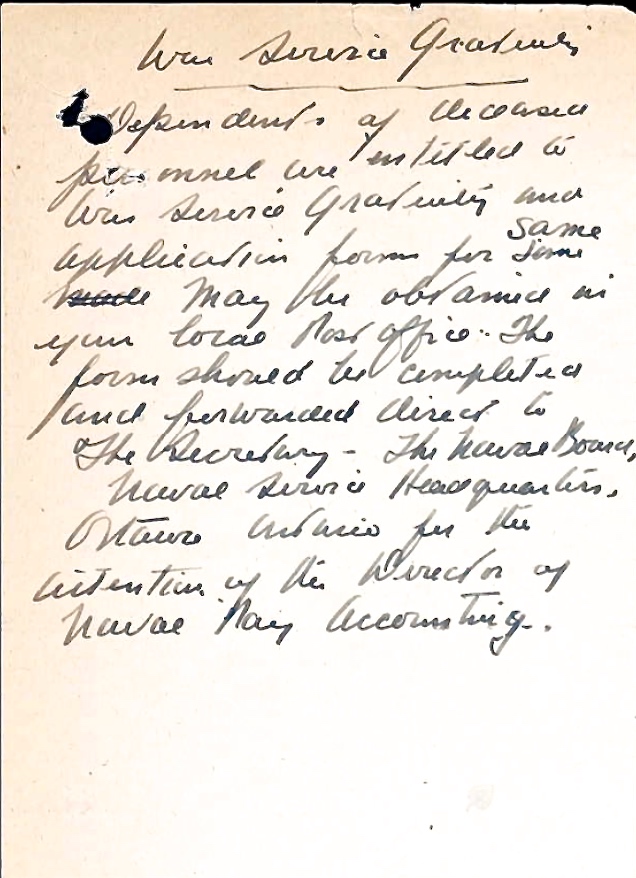 War Service Gratuity
Dependents of deceased
personnel are entitled to
War Service Gratuity and
same
application forms for same
made may be obtained in
your local Post Office. The
form should be completed
and forwarded direct to
The Secretary - The Naval Board,
Naval Service Headquarters,
Ottawa Ontario for the
attention of the Director of
Naval Pay Accounting.